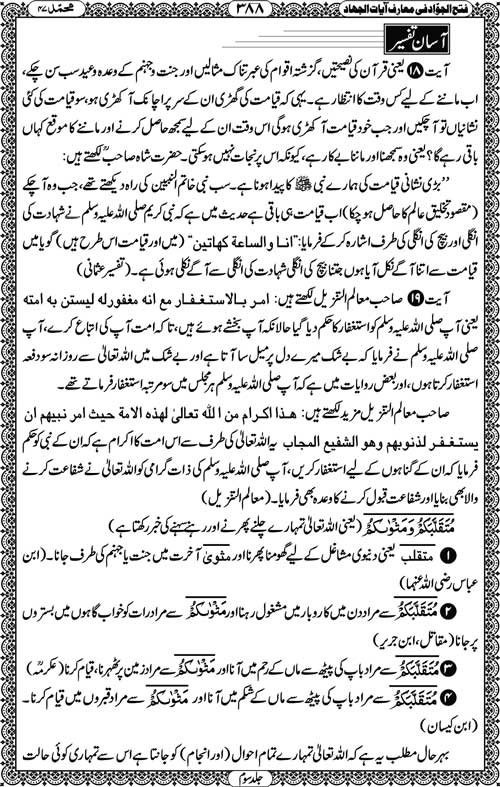 فتح الجوّاد فی معارف آیات الجہاد
۳۸۸
محمّد ۴۷
آسان تفسیر
آیت ۱۸ یعنی قرآن کی نصیحتیں، گزشتہ اقوام کی عبرتناک مثالیں اور جنت و جہنم کے وعدہ و وعید سب سن چکے،
اب ماننے کے لیے کس وقت کا انتظار ہے۔ یہی کہ قیامت کی گھڑی ان کے سر پر اچانک آکھڑی ہو، سو قیامت کی کئی
نشانیاں تو آچکیں اور جب خود قیامت آکھڑی ہوگی اس وقت ان کے لیے سمجھ حاصل کرنے اور ماننے کا موقع کہاں
باقی رہے گا؟ یعنی وہ سمجھنا اور ماننا بیکار ہے، کیونکہ اس پر نجات نہیں ہوسکتی۔ حضرت شاہ صاحبؒ لکھتے ہیں:
’’بڑی نشانی قیامت کی ہمارے نبی ﷺ کا پیدا ہونا ہے۔ سب نبی خاتم النبیین کی راہ دیکھتے تھے، جب وہ آچکے
(مقصود تخلیق عالم کا حاصل ہوچکا) اب قیامت ہی باقی ہے حدیث میں ہے کہ نبی کریم صلی اللہ علیہ وسلم نے شہادت کی
انگلی اور بیچ کی انگلی کی طرف اشارہ کرکے فرمایا: ”انا والساعة كهاتين“ (میں اور قیامت اس طرح ہیں) گویا میں
قیامت سے اتنا آگے نکل آیا ہوں جتنا بیچ کی انگلی شہادت کی انگلی سے آگے نکلی ہوئی ہے۔ (تفسیر عثمانی)
آیت ۱۹ صاحب معالم التنزیل لکھتے ہیں: امر بالاستغفار مع انه مغفور له ليستن به امته
یعنی آپ صلی اللہ علیہ وسلم کو استغفار کا حکم دیا گیا حالانکہ آپ بخشے ہوئے ہیں، تاکہ امت آپ کی اتباع کرے، آپ
صلی اللہ علیہ وسلم نے فرمایا کہ بے شک میرے دل پر میل سا آتا ہے اور بے شک میں اللہ تعالیٰ سے روزانہ سو دفعہ
استغفار کرتا ہوں، اور بعض روایات میں ہے کہ آپ صلی اللہ علیہ وسلم ہر مجلس میں سو مرتبہ استغفار فرماتے تھے۔
صاحب معالم التنزیل مزید لکھتے ہیں: هذا اكرام من الله تعالىٰ لهذه الامة حيث امر نبيهم ان
يستغفر لذنوبهم وهو الشفيع المجاب یہ اللہ تعالیٰ کی طرف سے اس امت کا اکرام ہے کہ ان کے نبی کو حکم
فرمایا کہ ان کے گناہوں کے لیے استغفار کریں، آپ صلی اللہ علیہ وسلم کی ذات گرامی کو اللہ تعالیٰ نے شفاعت کرنے
والا بھی بنایا اور شفاعت قبول کرنے کا وعدہ بھی فرمایا۔ (معالم التنزیل)
مُتَقَلَّبَكُمْ وَمَثْوٰىكُمْ (یعنی اللہ تعالیٰ تمہارے چلنے پھرنے اور رہنے سہنے کی خبر رکھتا ہے)
۱ متقلب یعنی دنیوی مشاغل کے لیے گھومنا پھرنا اور مثویٰ آخرت میں جنت یا جہنم کی طرف جانا۔ (ابن
عباس رضی اللہ عنہما)
۲ مُتَقَلَّبَكُمْ سے مراد دن میں کاروبار میں مشغول رہنا اور مَثْوٰىكُمْ سے مراد رات کو خواب گاہوں میں بستروں
پر جانا (مقاتل، ابن جریر)
۳ مُتَقَلَّبَكُمْ سے مراد باپ کی پیٹھ سے ماں کے رحم میں آنا اور مَثْوٰىكُمْ سے مراد زمین پر ٹھہرنا، قیام کرنا (عکرمہؒ)
۴ مُتَقَلَّبَكُمْ سے مراد باپ کی پیٹھ سے ماں کے شکم میں آنا اور مَثْوٰىكُمْ سے مراد قبروں میں قیام کرنا۔
(ابن کیسان)
بہرحال مطلب یہ ہے کہ اللہ تعالیٰ تمہارے تمام احوال (اور انجام) کو جانتا ہے اس سے تمہاری کوئی حالت
جلد سوم